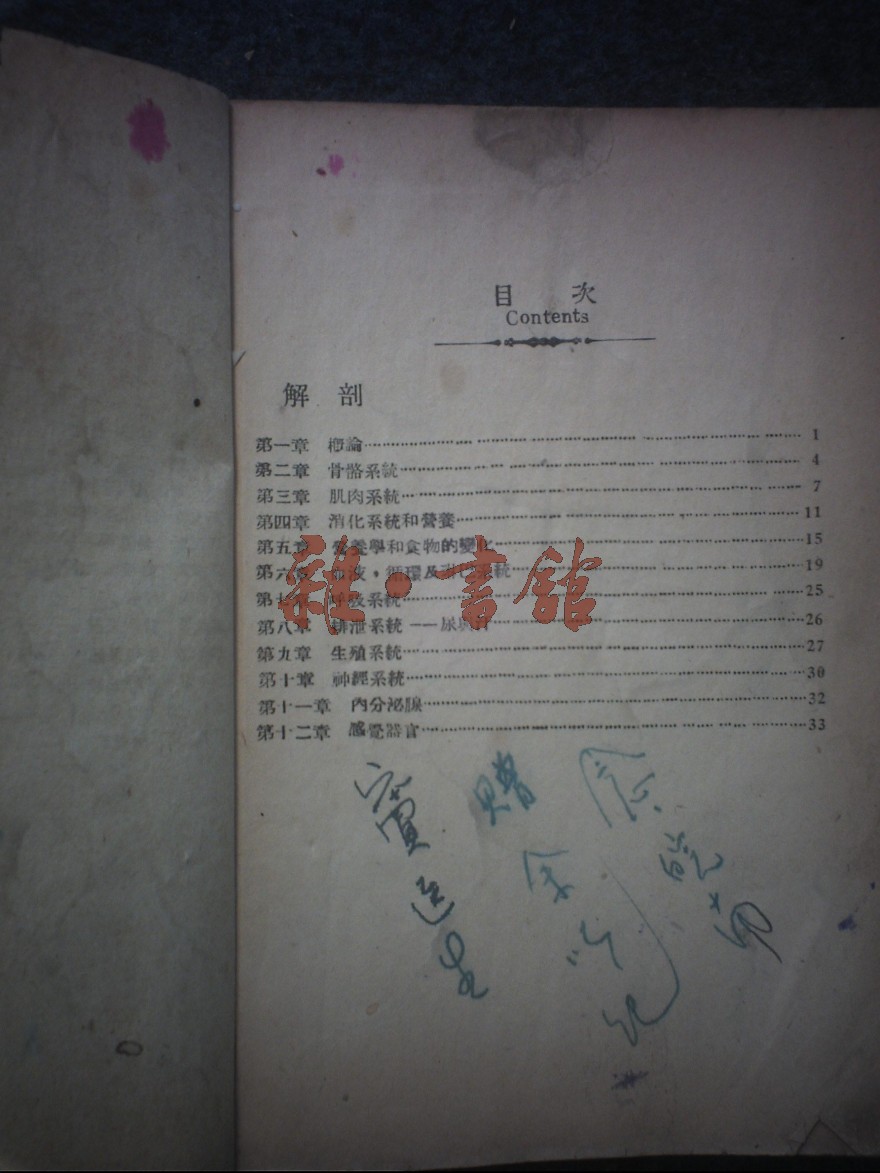 目 次
Contents
解 剖
第一章 概論 1
第二章 骨骼系統 4
第三章 肌肉系統 7
第四章 消化系統和營養 11
第五章 營養學和食物的變化 15
第六章 液，循環及系統 19
第七章 呼吸系統 25
第八章 排泄系統——尿與汗 26
第九章 生殖系統 27
第十章 神經系統 30
第十一章 內分泌腺 32
第十二章 感覺器官 33
雜·書館
贈